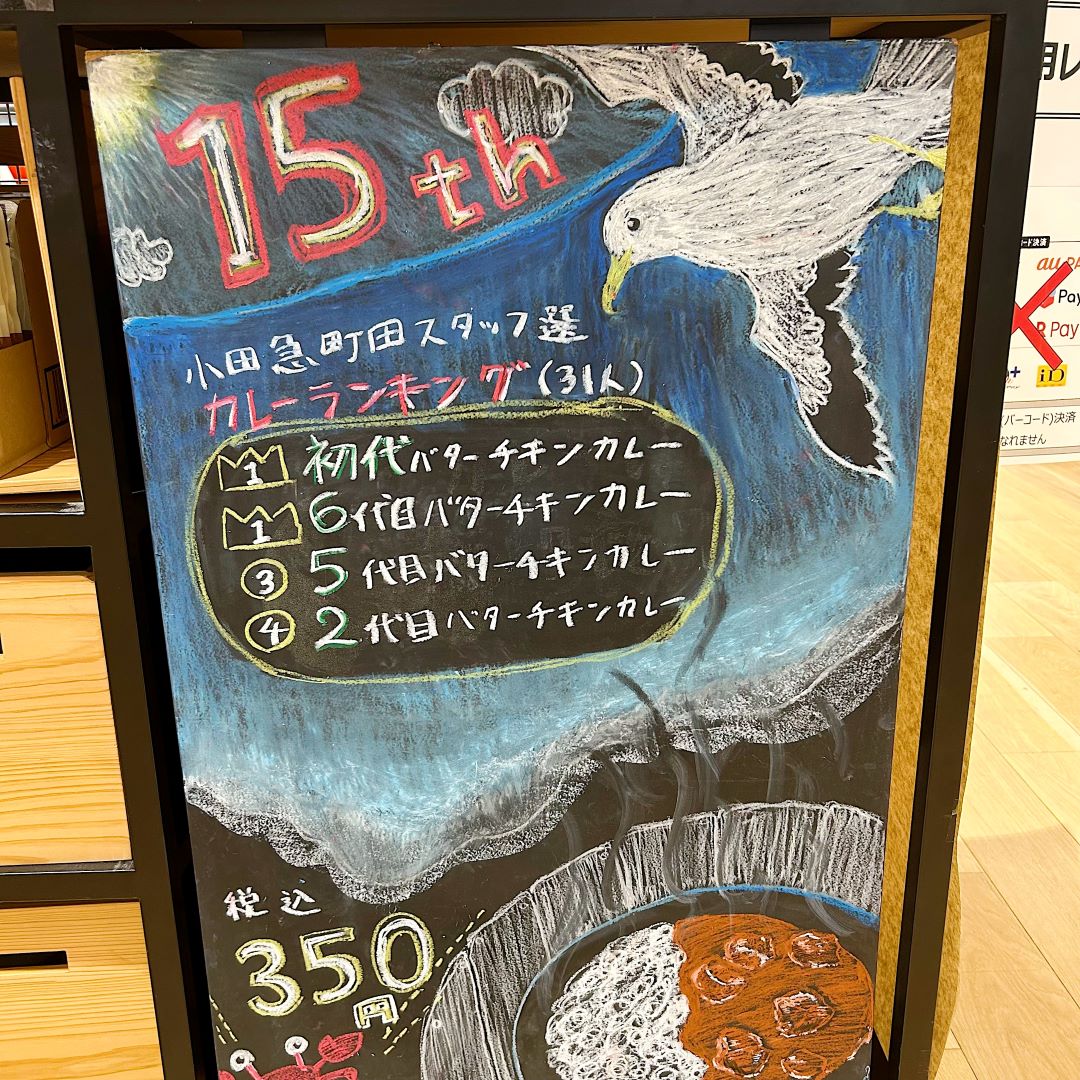 15th
小田急町田スタッフ選
カレーランキング(31人)
1 初代バターチキンカレー
1 6代目バターチキンカレー
③ 5代目バターチキンカレー
④ 2代目バターチキンカレー
税込
350円
コード決済
au PA
Pay
R Pay
iD
(バーコード)決済
なれません